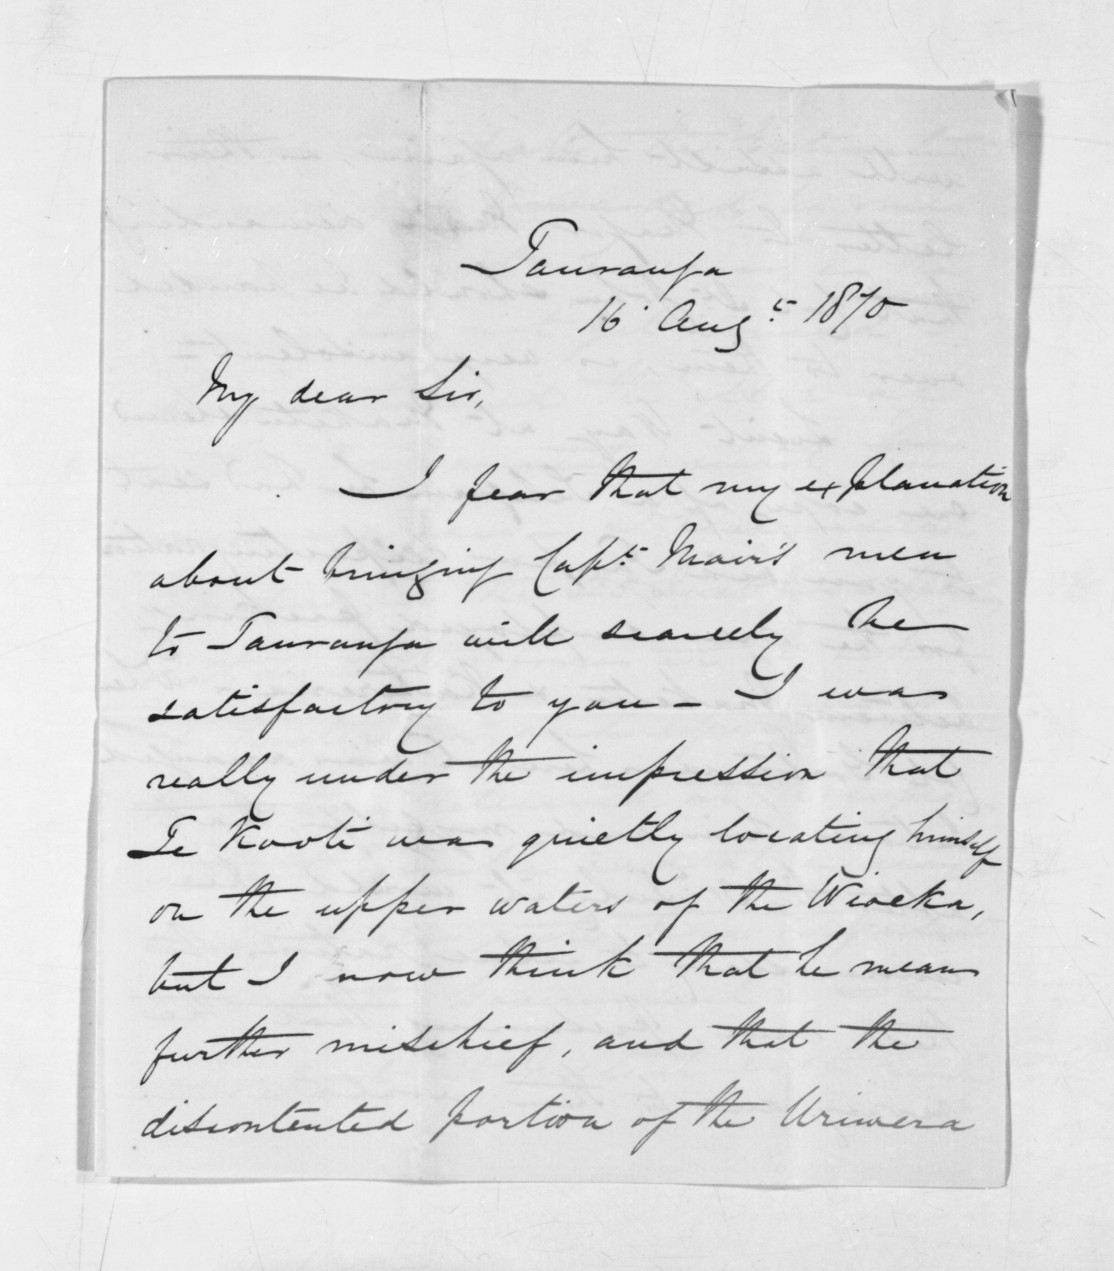 Tauranga
16 Augt 1870
My dear Sir,
I fear that my explanation
about bringing Capt. Mair's men
to Tauranga will scarcely be
satisfactory to you — I was
really under the impression that
Te Kooti was quietly locating himself
on the upper waters of the Wioeka,
but I now think that he means
further mischief, and that the
discontented portion of the Uriwera